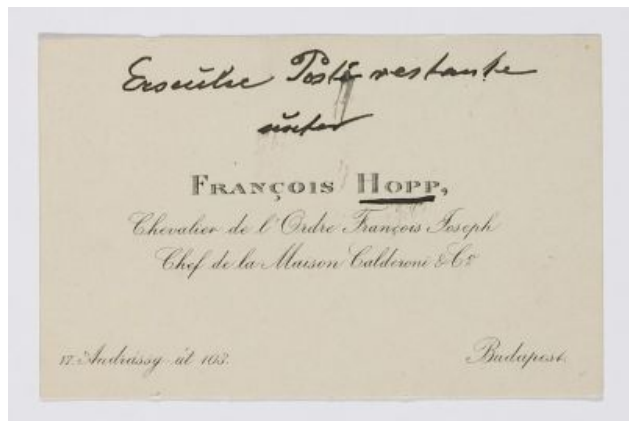 Ersuche Poste restante
unter
FRANÇOIS HOPP,
Chevalier de l'Ordre François Joseph
Chef de la Maison Calderoni & Cº
Andrássy út 103.
Budapest.